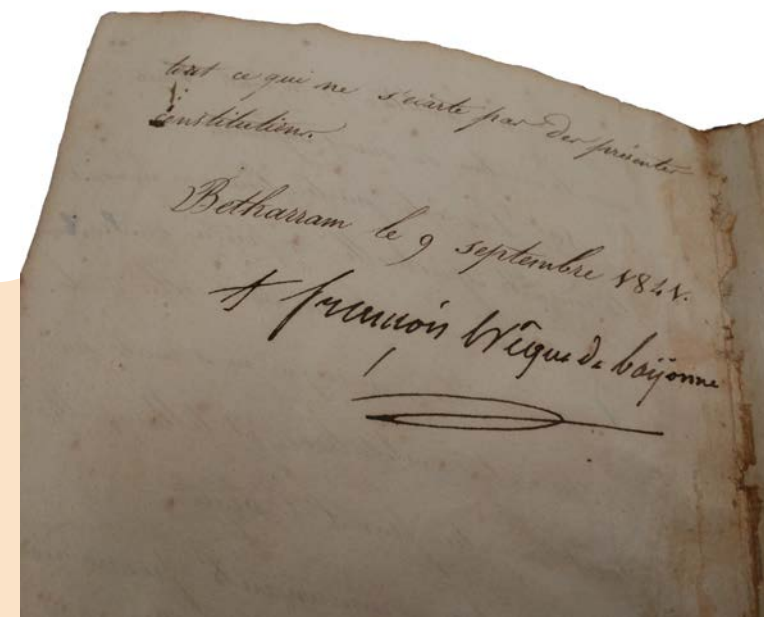 tout ce qui ne s'écarte pas des présentes
constitutions.
Betharram le 9 septembre 1841.
+ françois Evêque de bayonne